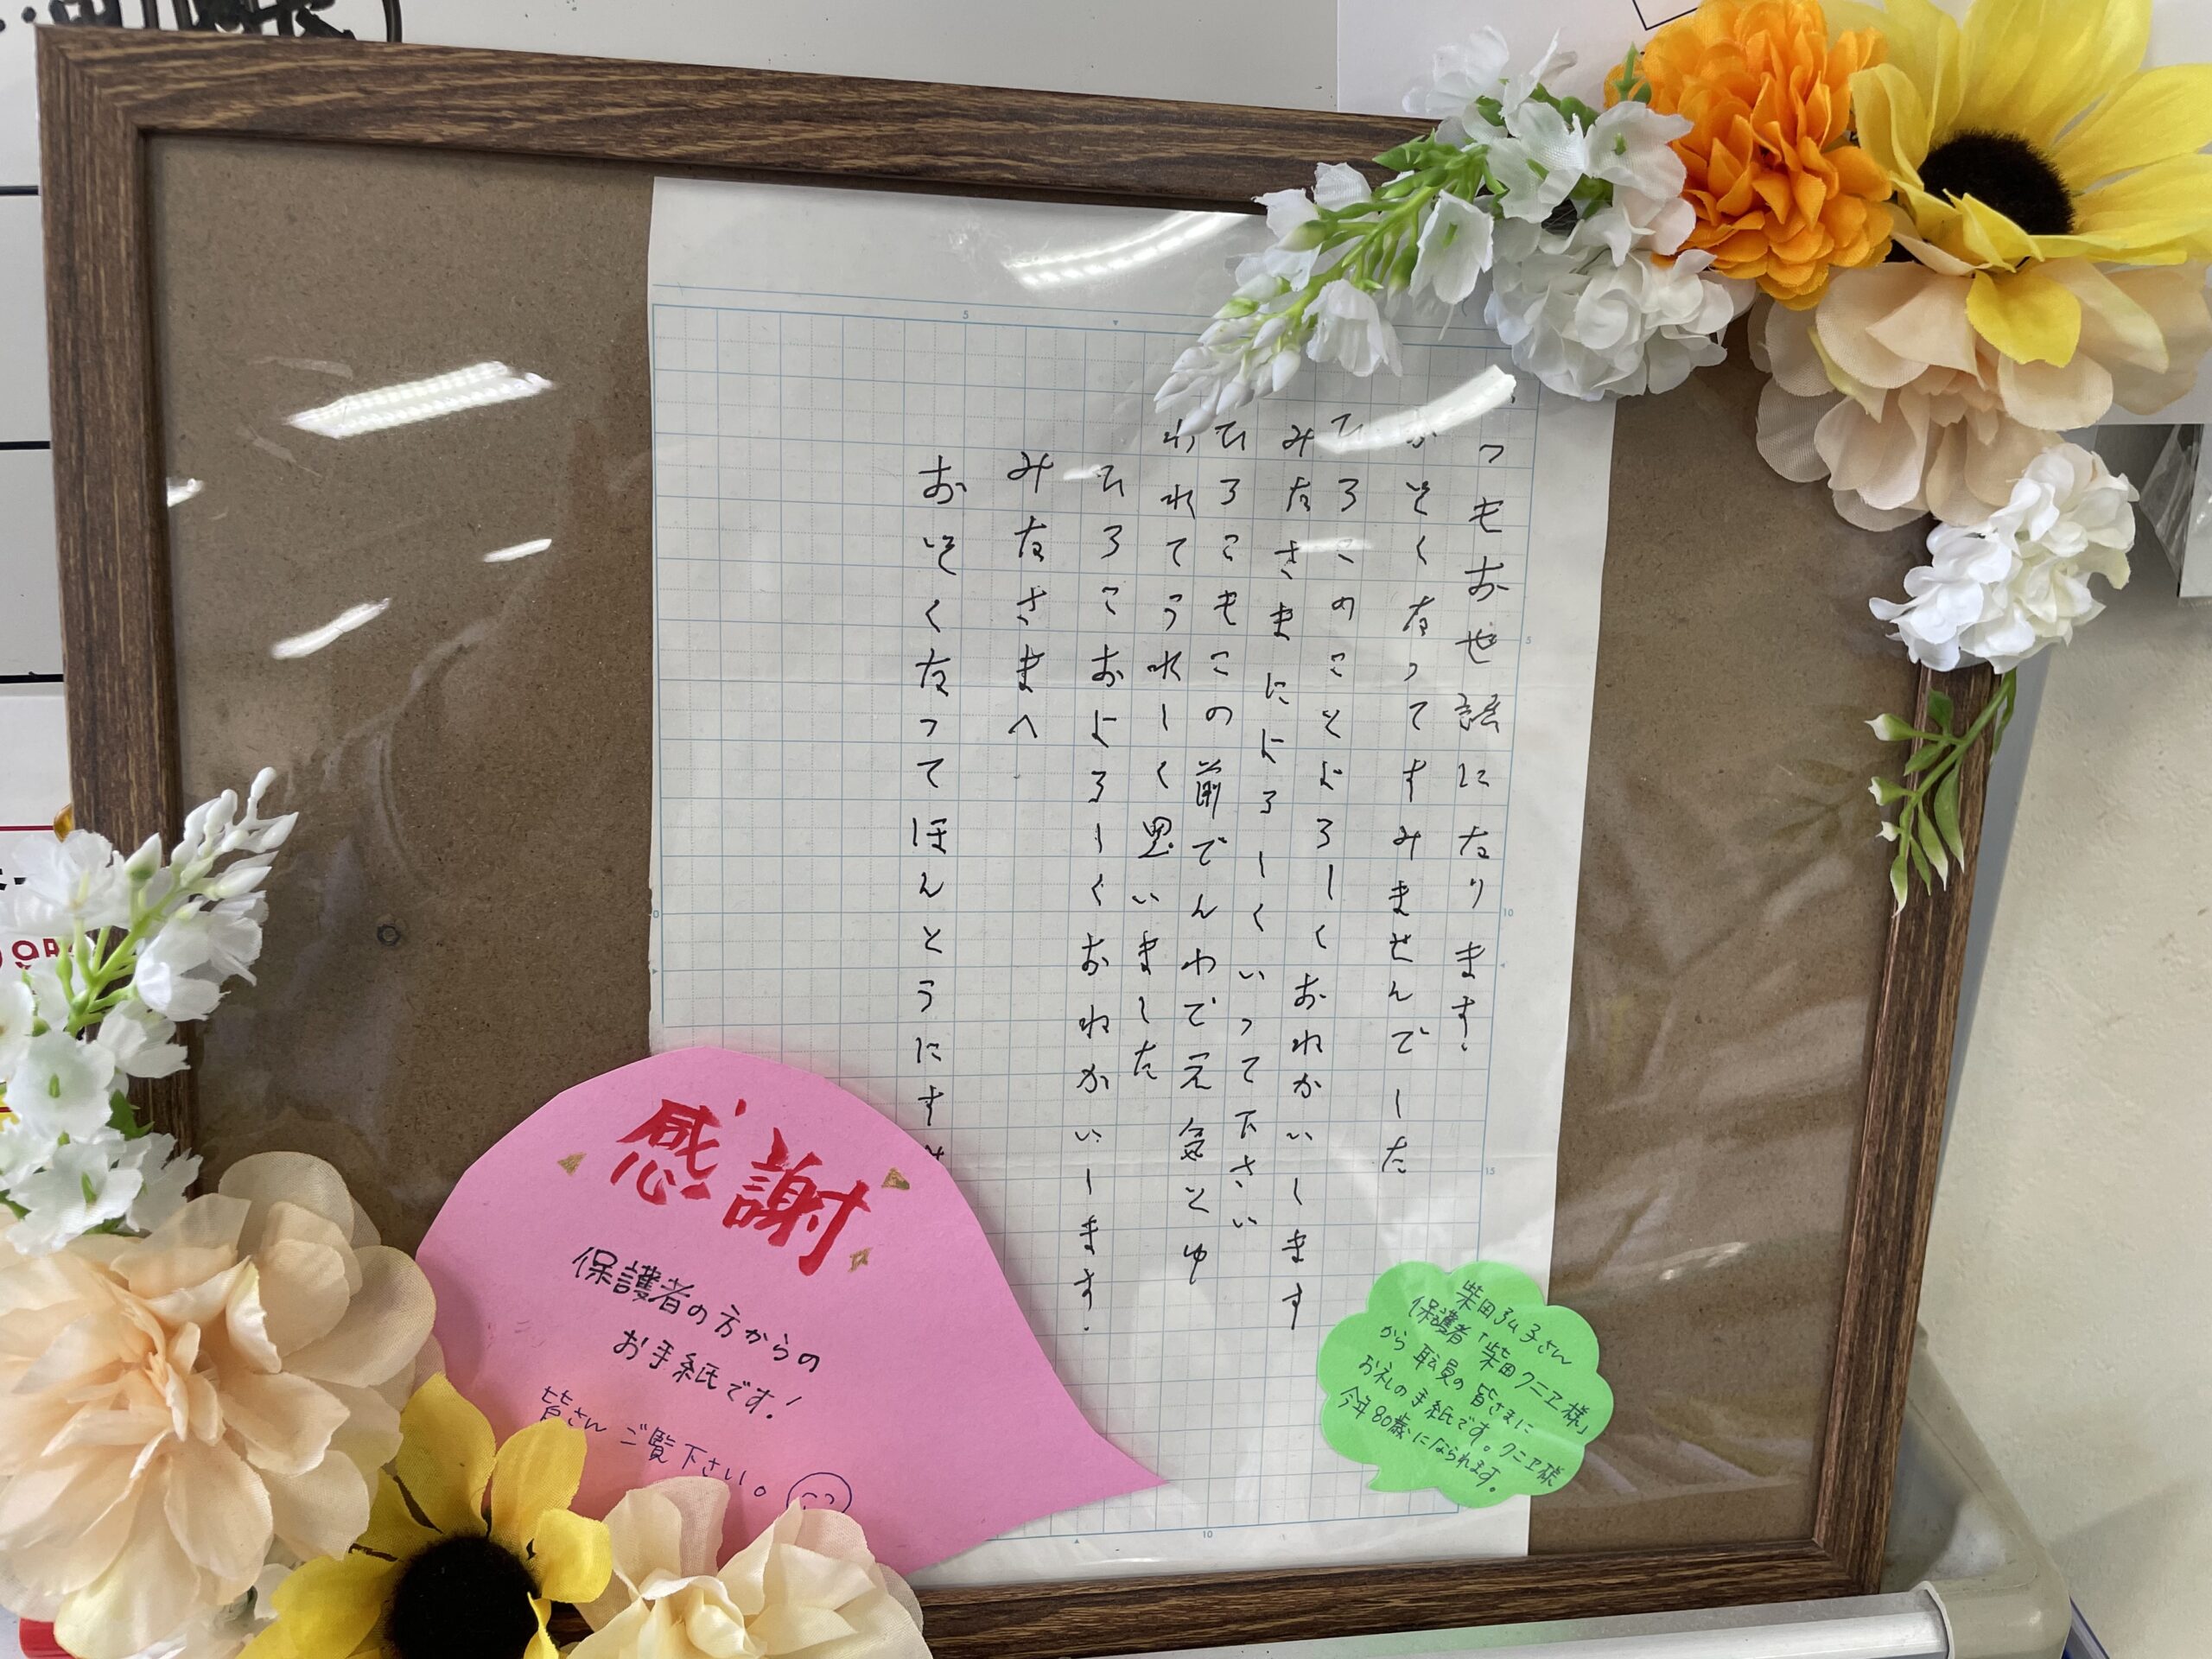 つもお世話になります.
おそくなってすみませんでした
ひろこのことよろしくおねがいします
みなさまによろしくいって下さい
ひろこもこの前でんわで元気とゆ
われてうれしく思いました
ひろこおよろしくおねがいします.
みなさまへ
おそくなってほんとうにすみ
感謝
保護者の方からの
お手紙です!
皆さんご覧下さい。
柴田弘子さん
保護者「柴田クニヱ様」
から職員の皆さまに
お礼の手紙です。クニヱ様
今年80歳になられます。